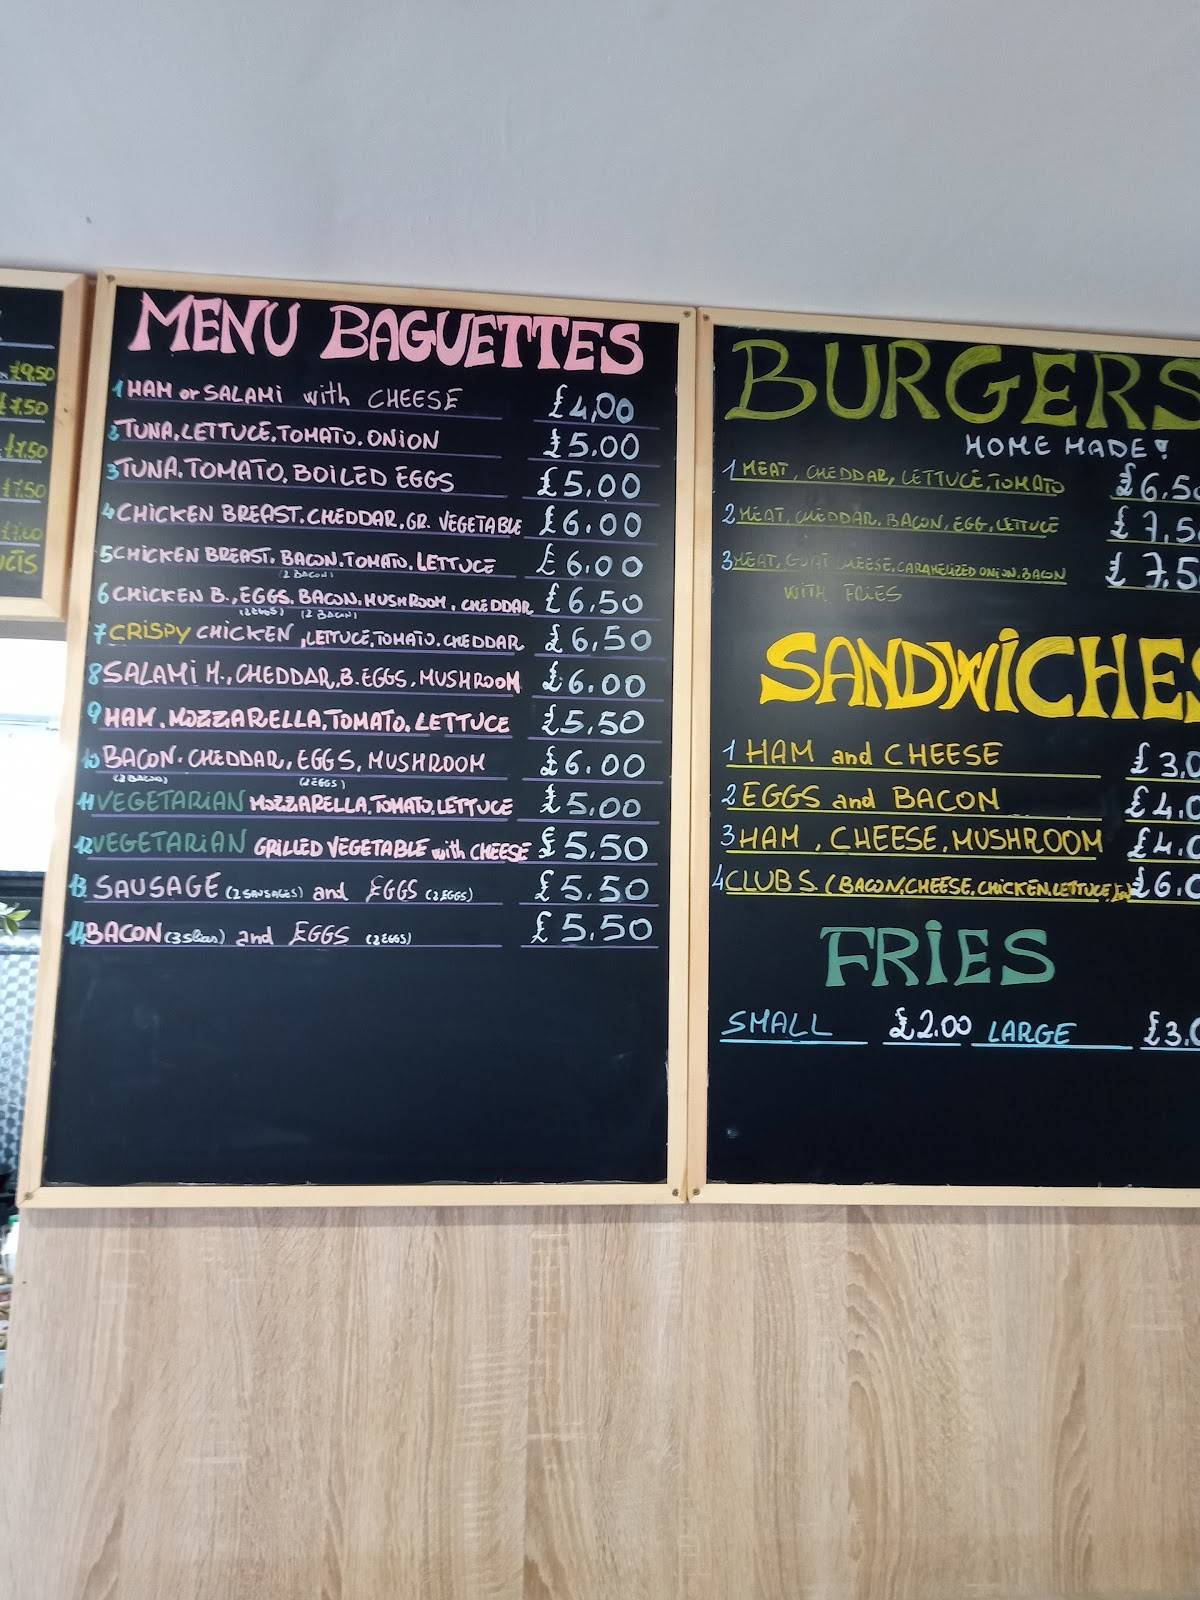 £9.50
£7.50
£7.50
£7.50
MENU BAGUETTES
1 HAM or SALAMI with CHEESE £4,00
2 TUNA, LETTUCE, TOMATO. ONION £5.00
3 TUNA. TOMATO. BOILED EGGS £5,00
4 CHICKEN BREAST. CHEDDAR, GR. VEGETABLE £6.00
5 CHICKEN BREAST. BACON. TOMATO. LETTUCE £6.00
(2 BACON)
6 CHICKEN B., EGGS. BACON. MUSHROOM, CHEDDAR £6,50
(2 EGGS) (2 BACON)
7 CRISPY CHICKEN, LETTUCE, TOMATO. CHEDDAR £6,50
8 SALAMI M., CHEDDAR, B. EGGS, MUSHROOM £6.00
9 HAM. MOZZARELLA, TOMATO, LETTUCE £5.50
10 BACON. CHEDDAR, EGGS, MUSHROOM £6.00
(2 BACON) (2 EGGS)
11 VEGETARIAN MOZZARELLA, TOMATO, LETTUCE £5,00
12 VEGETARIAN GRILLED VEGETABLE with CHEESE £5.50
13. SAUSAGE (2 SAUSAGES) and EGGS (2 EGGS) £5.50
14 BACON and EGGS (2 EGGS) £5.50
BURGERS
HOME MADE!
1 MEAT, CHEDDAR, LETTUCE, TOMATO £6.5
2 MEAT, CHEDDAR. BACON, EGG, LETTUCE £7,5
3 MEAT, GOAT CHEESE, CARAMELIZED ONION. BACON £7,5
WITH FRIES
SANDWICHES
1 HAM and CHEESE £3,0
2 EGGS and BACON £4,0
3 HAM, CHEESE, MUSHROOM £4.0
4 CLUBS (BACON, CHEESE, CHICKEN, LETTUCE, £6.0
FRIES
SMALL £2.00 LARGE £3.0